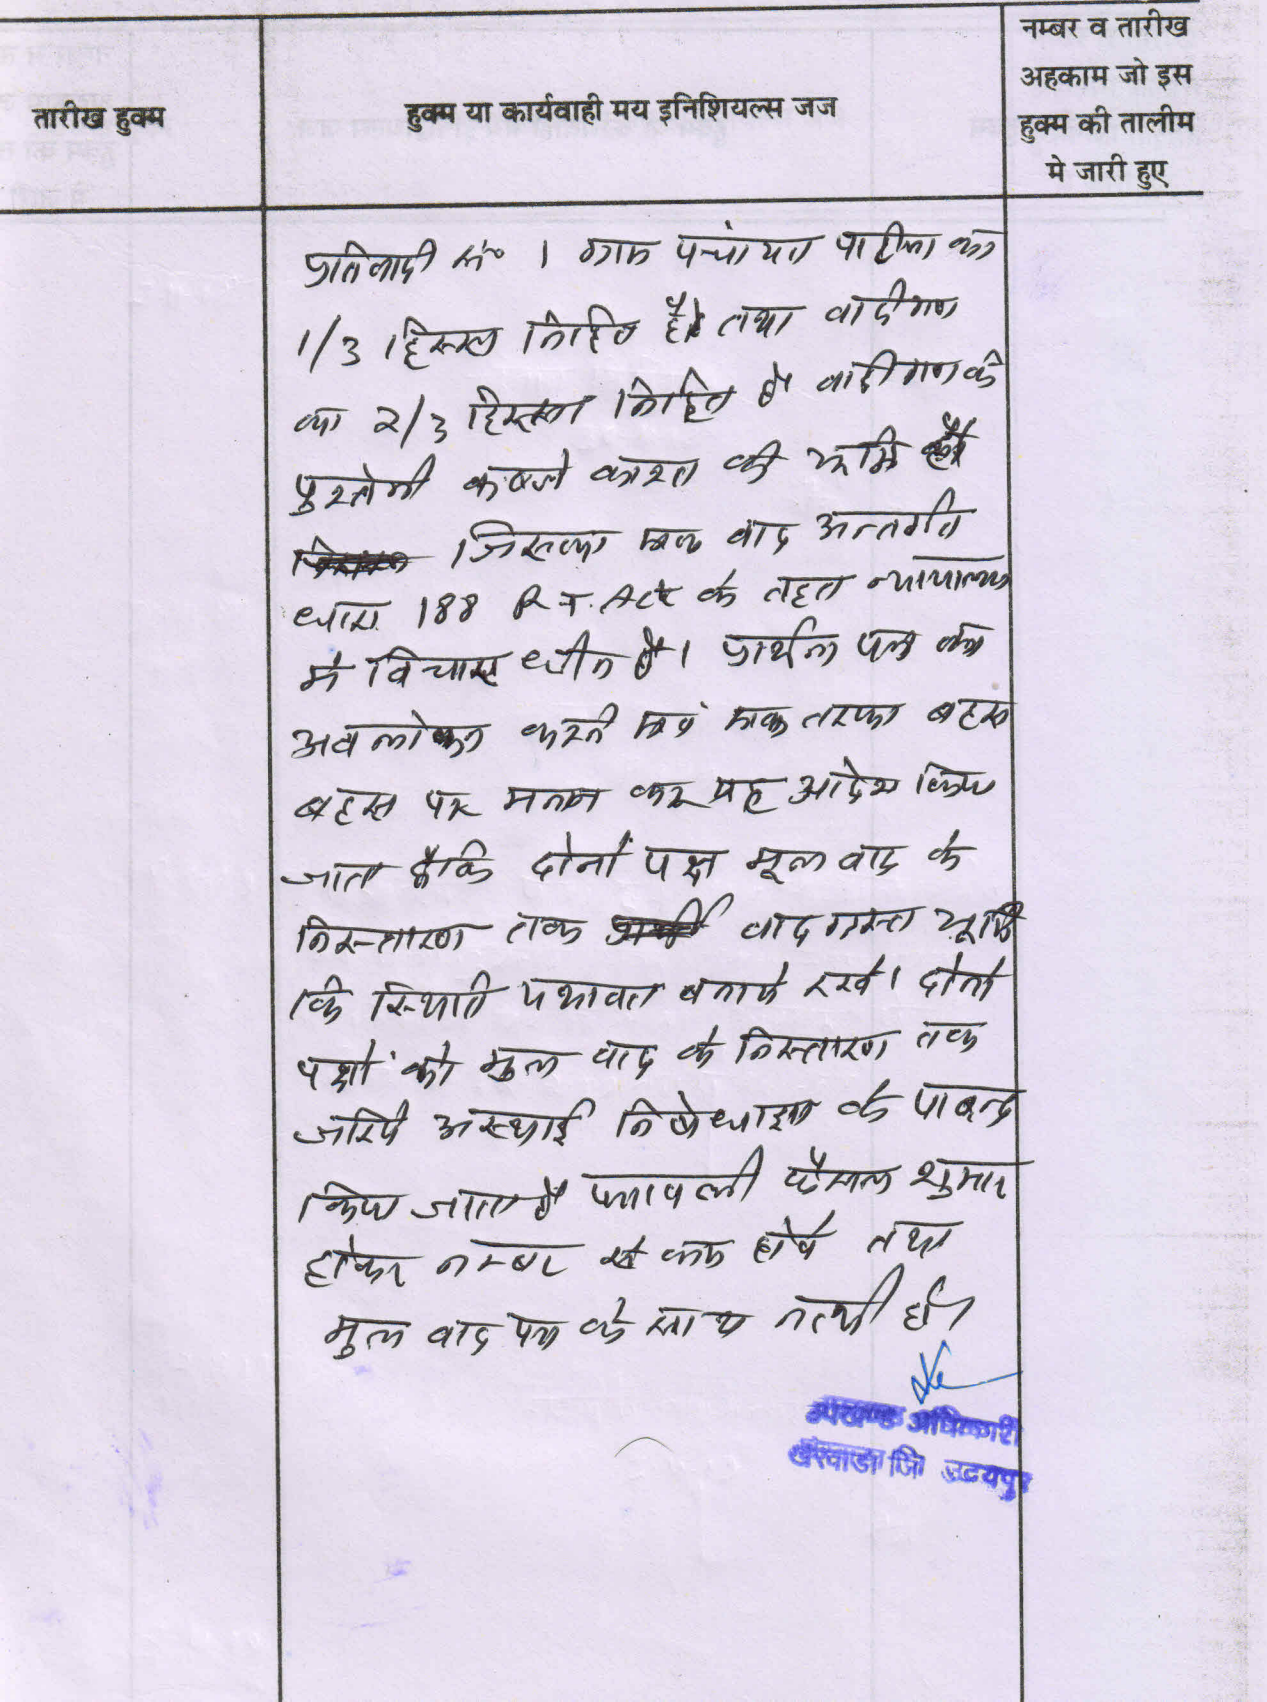 तारीख हुक्म
हुक्म या कार्यवाही मय इनिशियल्स जज
नम्बर व तारीख
अहकाम जो इस
हुक्म की तालीम
मे जारी हुए
प्रतिवादी सं० 1 ग्राम पंचायत का
1/3 हिस्सा निहित है तथा वादीगण
का 2/3 हिस्सा निहित है वादीगण के
पुश्तेनी कब्जे काश्त की भूमि है
जिसका एक वाद अन्तर्गत
धारा 188 R.T. Act के तहत न्यायालय
मे विचाराधीन है। प्रार्थना पत्र का
अवलोकन करने एवं एक तरफा बहस
बहस पर मनन कर यह आदेश किया
जाता है कि दोनों पक्ष मूल वाद के
निस्तारण तक वादग्रस्त भूमि
कि स्थिति यथावत बनाये रखे। दोनो
पक्षों को मुल वाद के निस्तारण तक
जरिये अस्थाई निषेधाज्ञा के पाबन्द
किया जाता है पत्रावली फैसल शुमार
होकर नम्बर से कम होवे तथा
मुल वाद पत्र के साथ नत्थी हो।
उपखण्ड अधिकारी
खेरवाडा जि उदयपुर